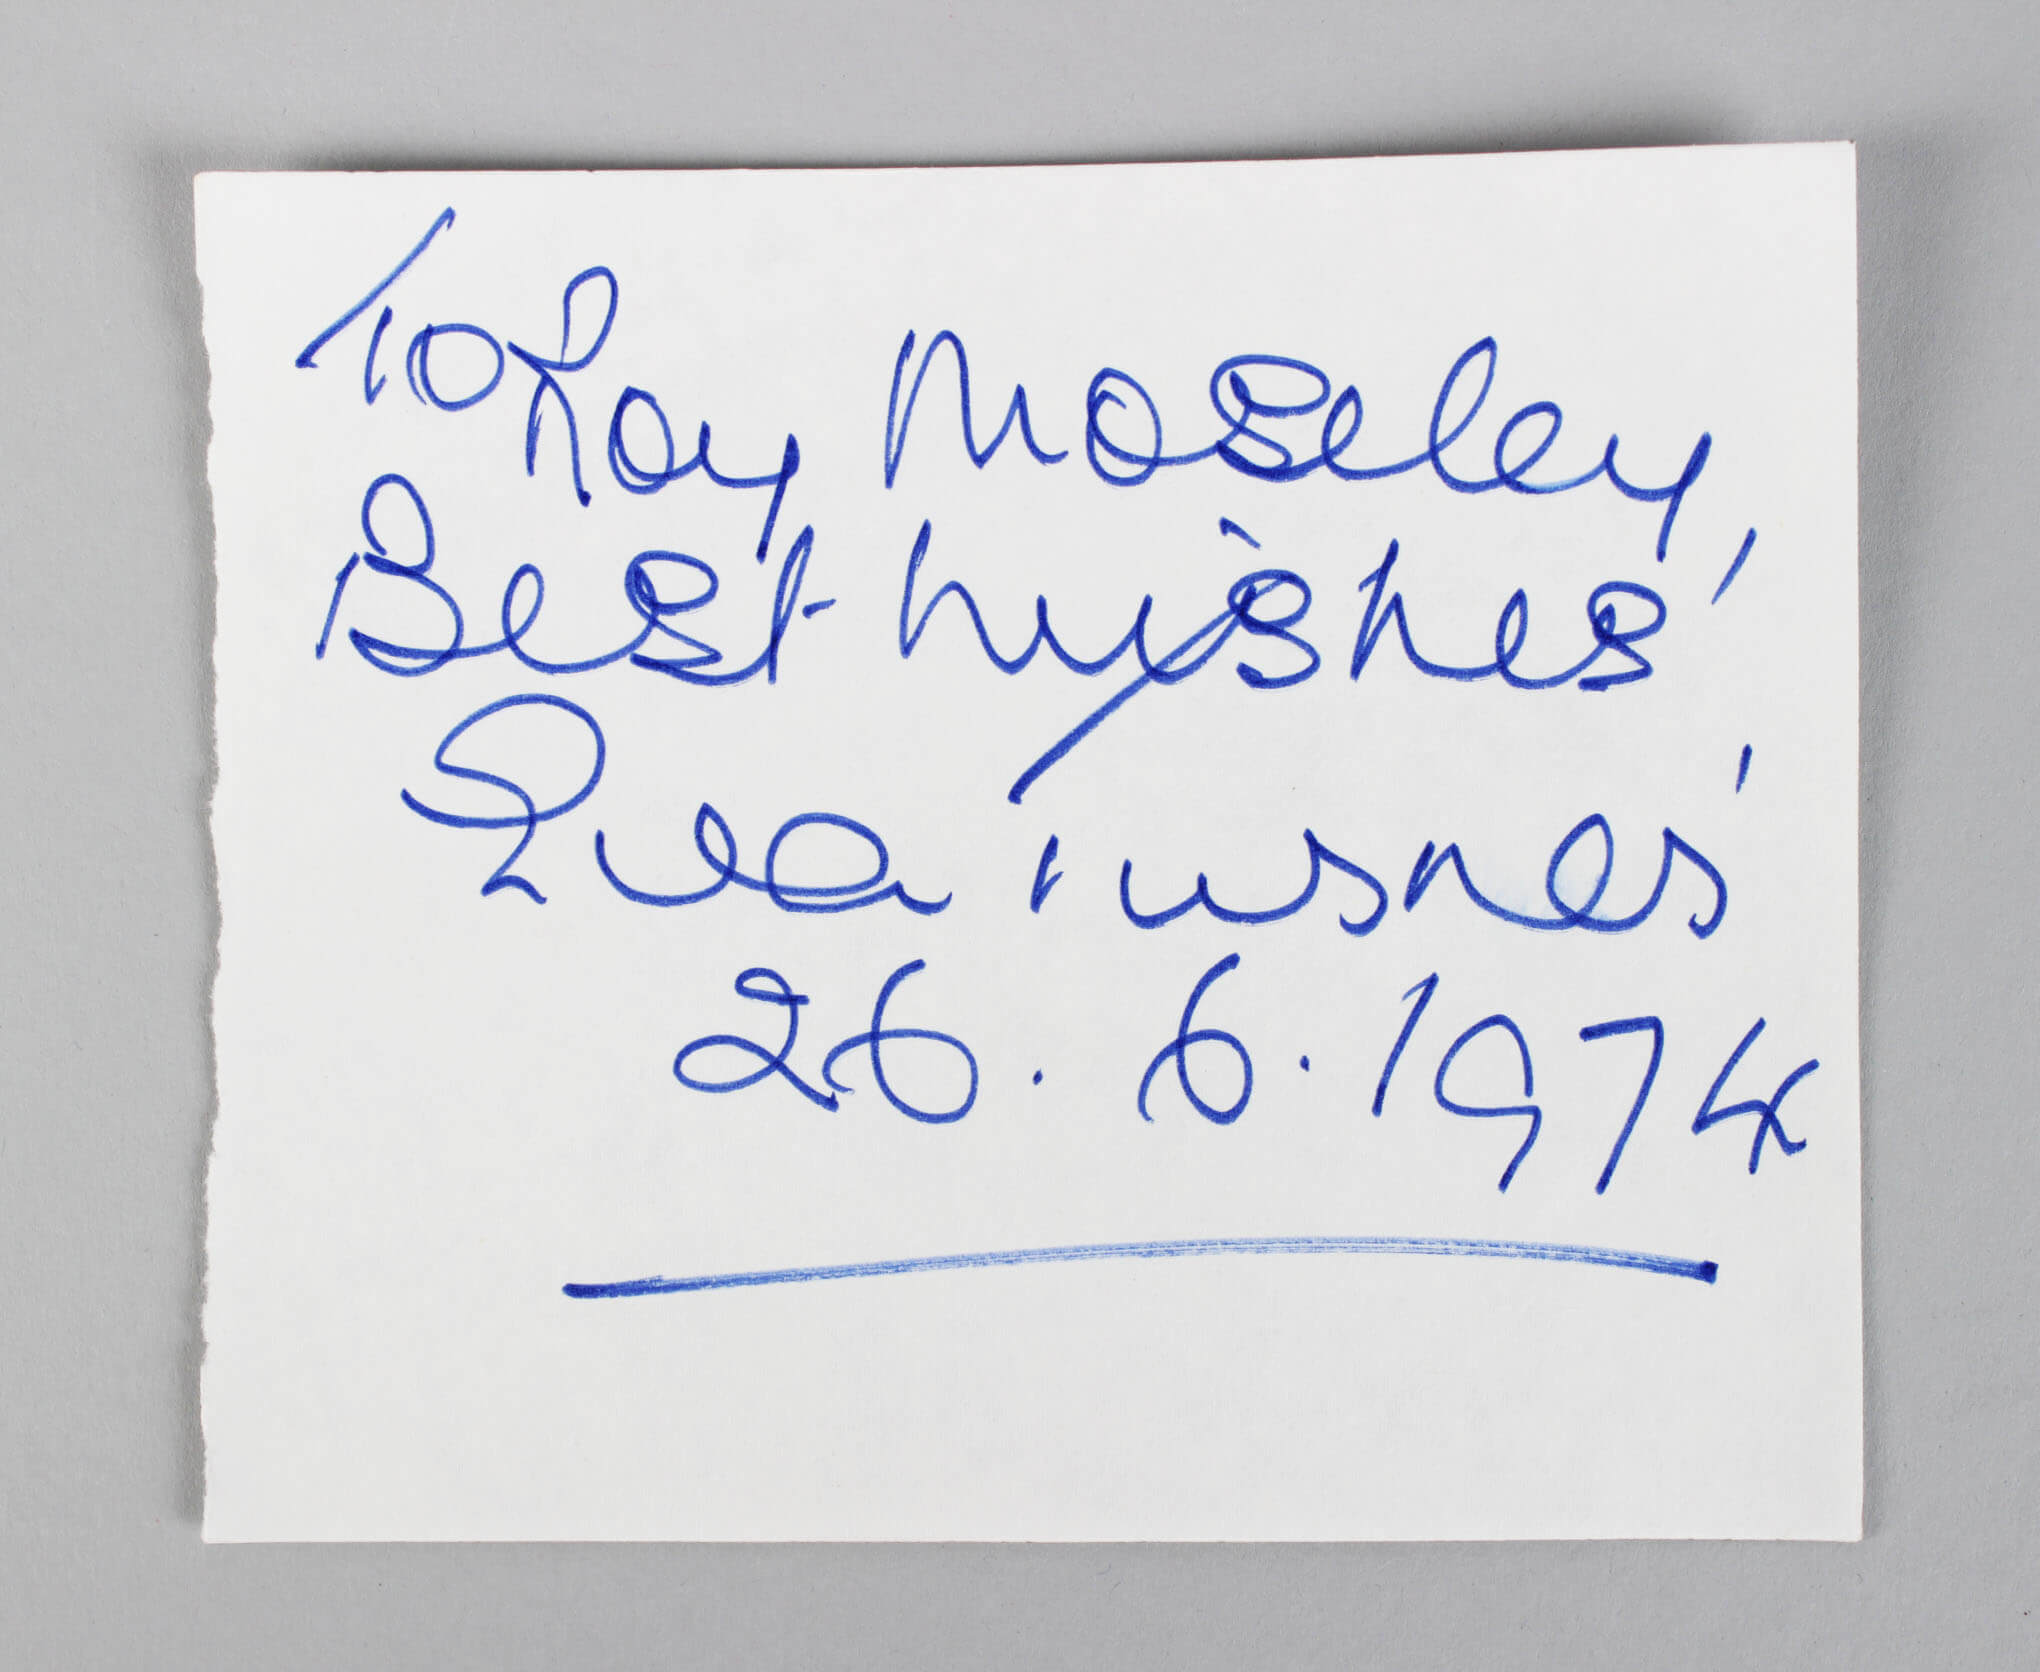 To Roy Moseley,
Best wishes,
Eva Turner
26.6.1974